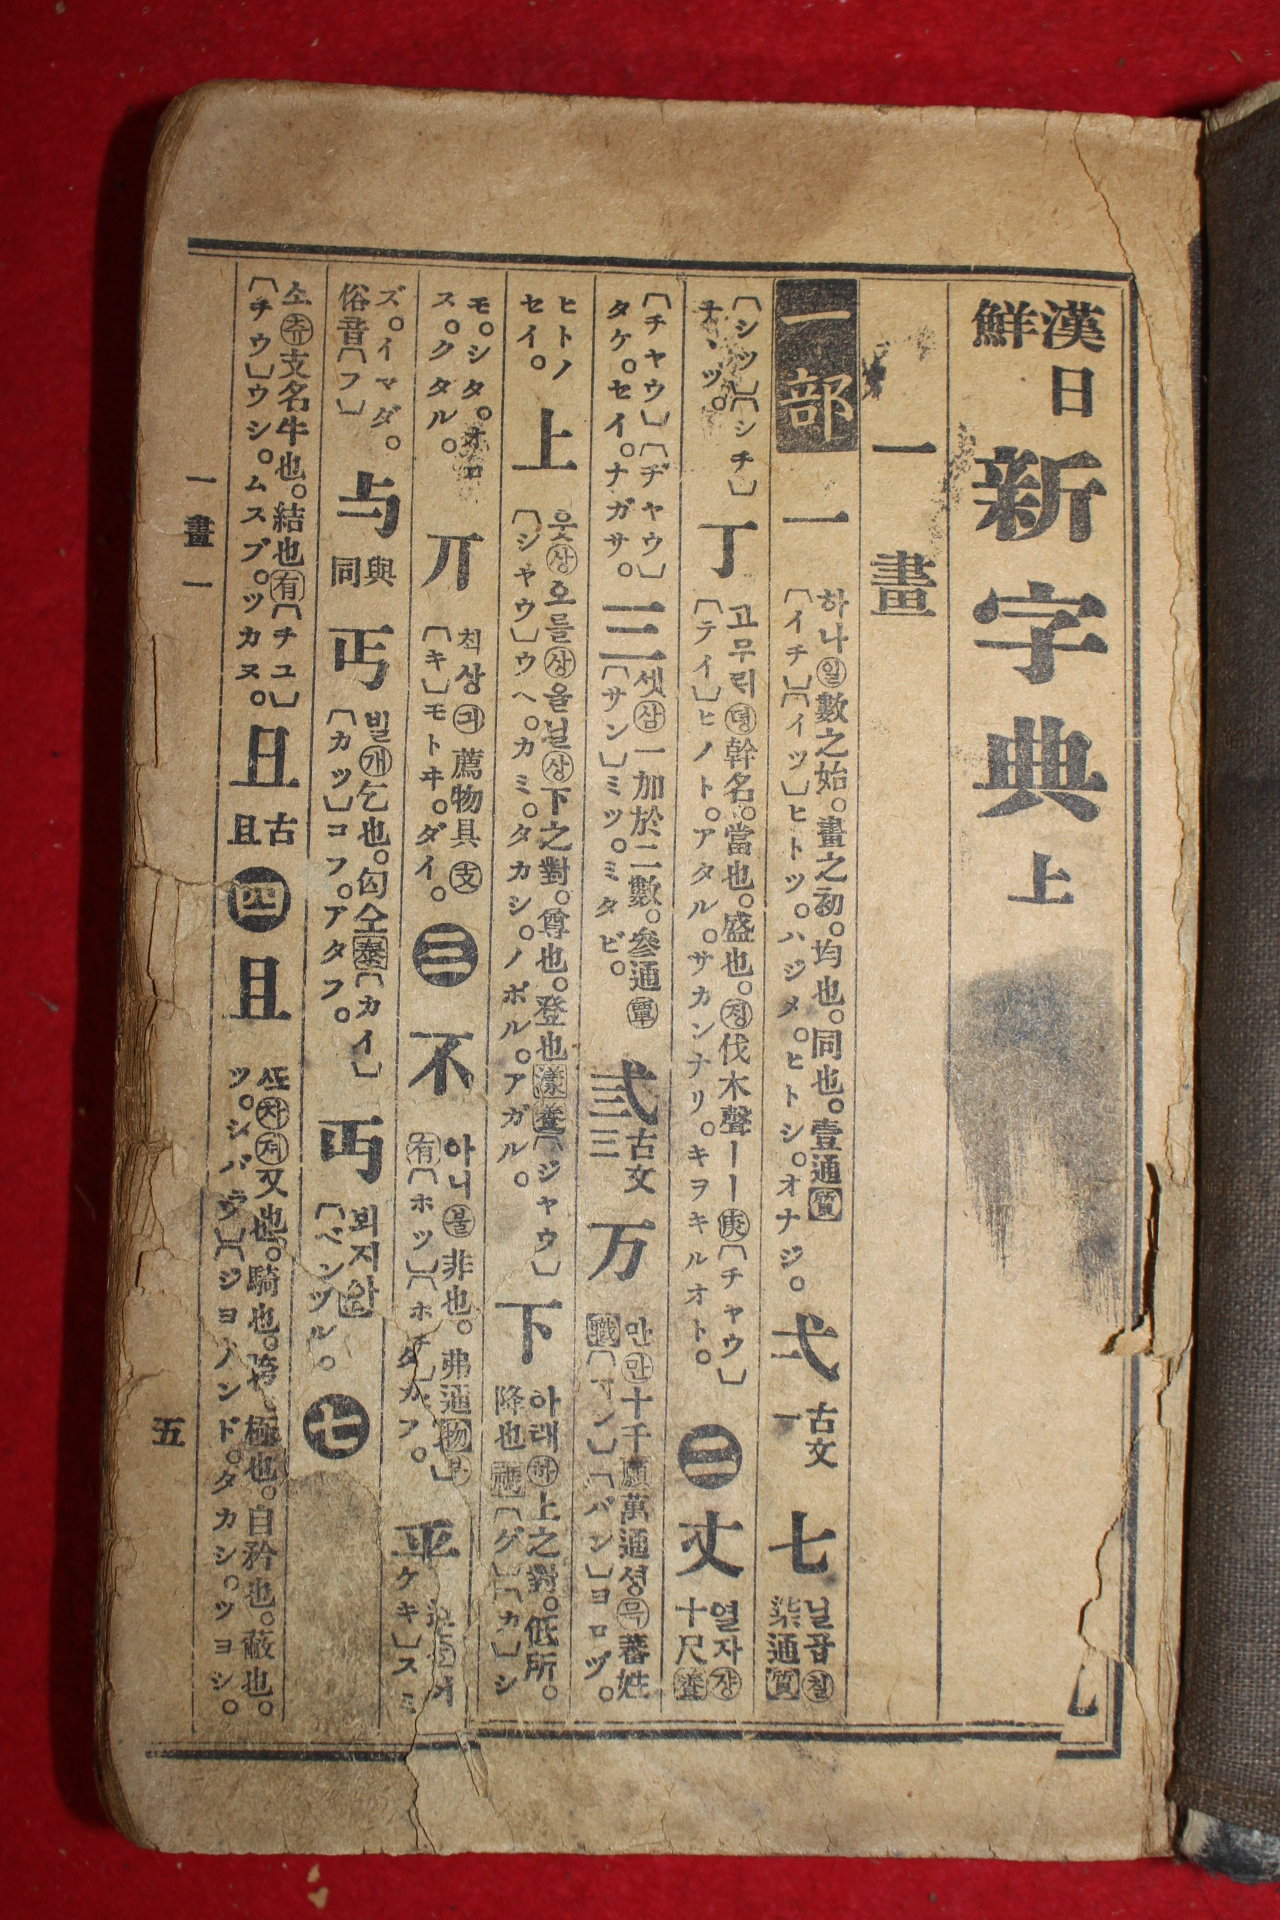 漢日鮮 新字典 上
一畫
一部 一 하나㊀數之始。畫之初。均也。同也。壹通質
〔イチ〕〔イツ〕ヒトツ。ハジメ。ヒトシ。オナジ。
弌 古文一
七 닐곱칠 柒通質
〔シツ〕〔シチ〕
ナヽツ。
丁 고무리뎡幹名。當也。盛也。졍伐木聲丨丨庚〔チヤウ〕
〔テイ〕ヒノト。アタル。サカンナリ。キヲキルオト。
二
丈 열자쟝 十尺養
〔チヤウ〕〔ヂヤウ〕
タケ。セイ。ナガサ。
三 셋삼一加於二數。參通覃
〔サン〕ミツ。ミタビ。
弎 古文三
万 만만十千願萬通셩믁蕃姓
職〔マン〕〔バン〕ヨロヅ。
ヒトノ
セイ。
上 웃상오를상올닐상下之對。尊也。登也漾養〔ジヤウ〕
〔ジヤウ〕ウヘ。カミ。タカシ。ノボル。アガル。
下 아래하上之對。低所。
降也禡〔ゲ〕〔カ〕シ
モ。シタ。オロ
ス。クダル。
丌 칙상긔薦物具支
〔キ〕モトヰ。ダイ。
三
不 아니불非也。弗通物부
有〔ホツ〕〔ホチ〕
ズ。イマダ。
俗音〔フ〕
与 與同
丐 빌개乞也。匃仝泰〔カイ〕
〔カツ〕コフ。アタフ。
丏 뵈지안
〔ベン〕ヅル。
七
소츅支名牛也。結也有〔チユ〕
〔チウ〕ウシ。ムスブ。ツカヌ。
且 古且
四
且 又也。騎也。極也。自矜也。蔽也。
ツ。シバラク〕〔ジヨ。タカシ。ツヨシ。
一畫 一
五